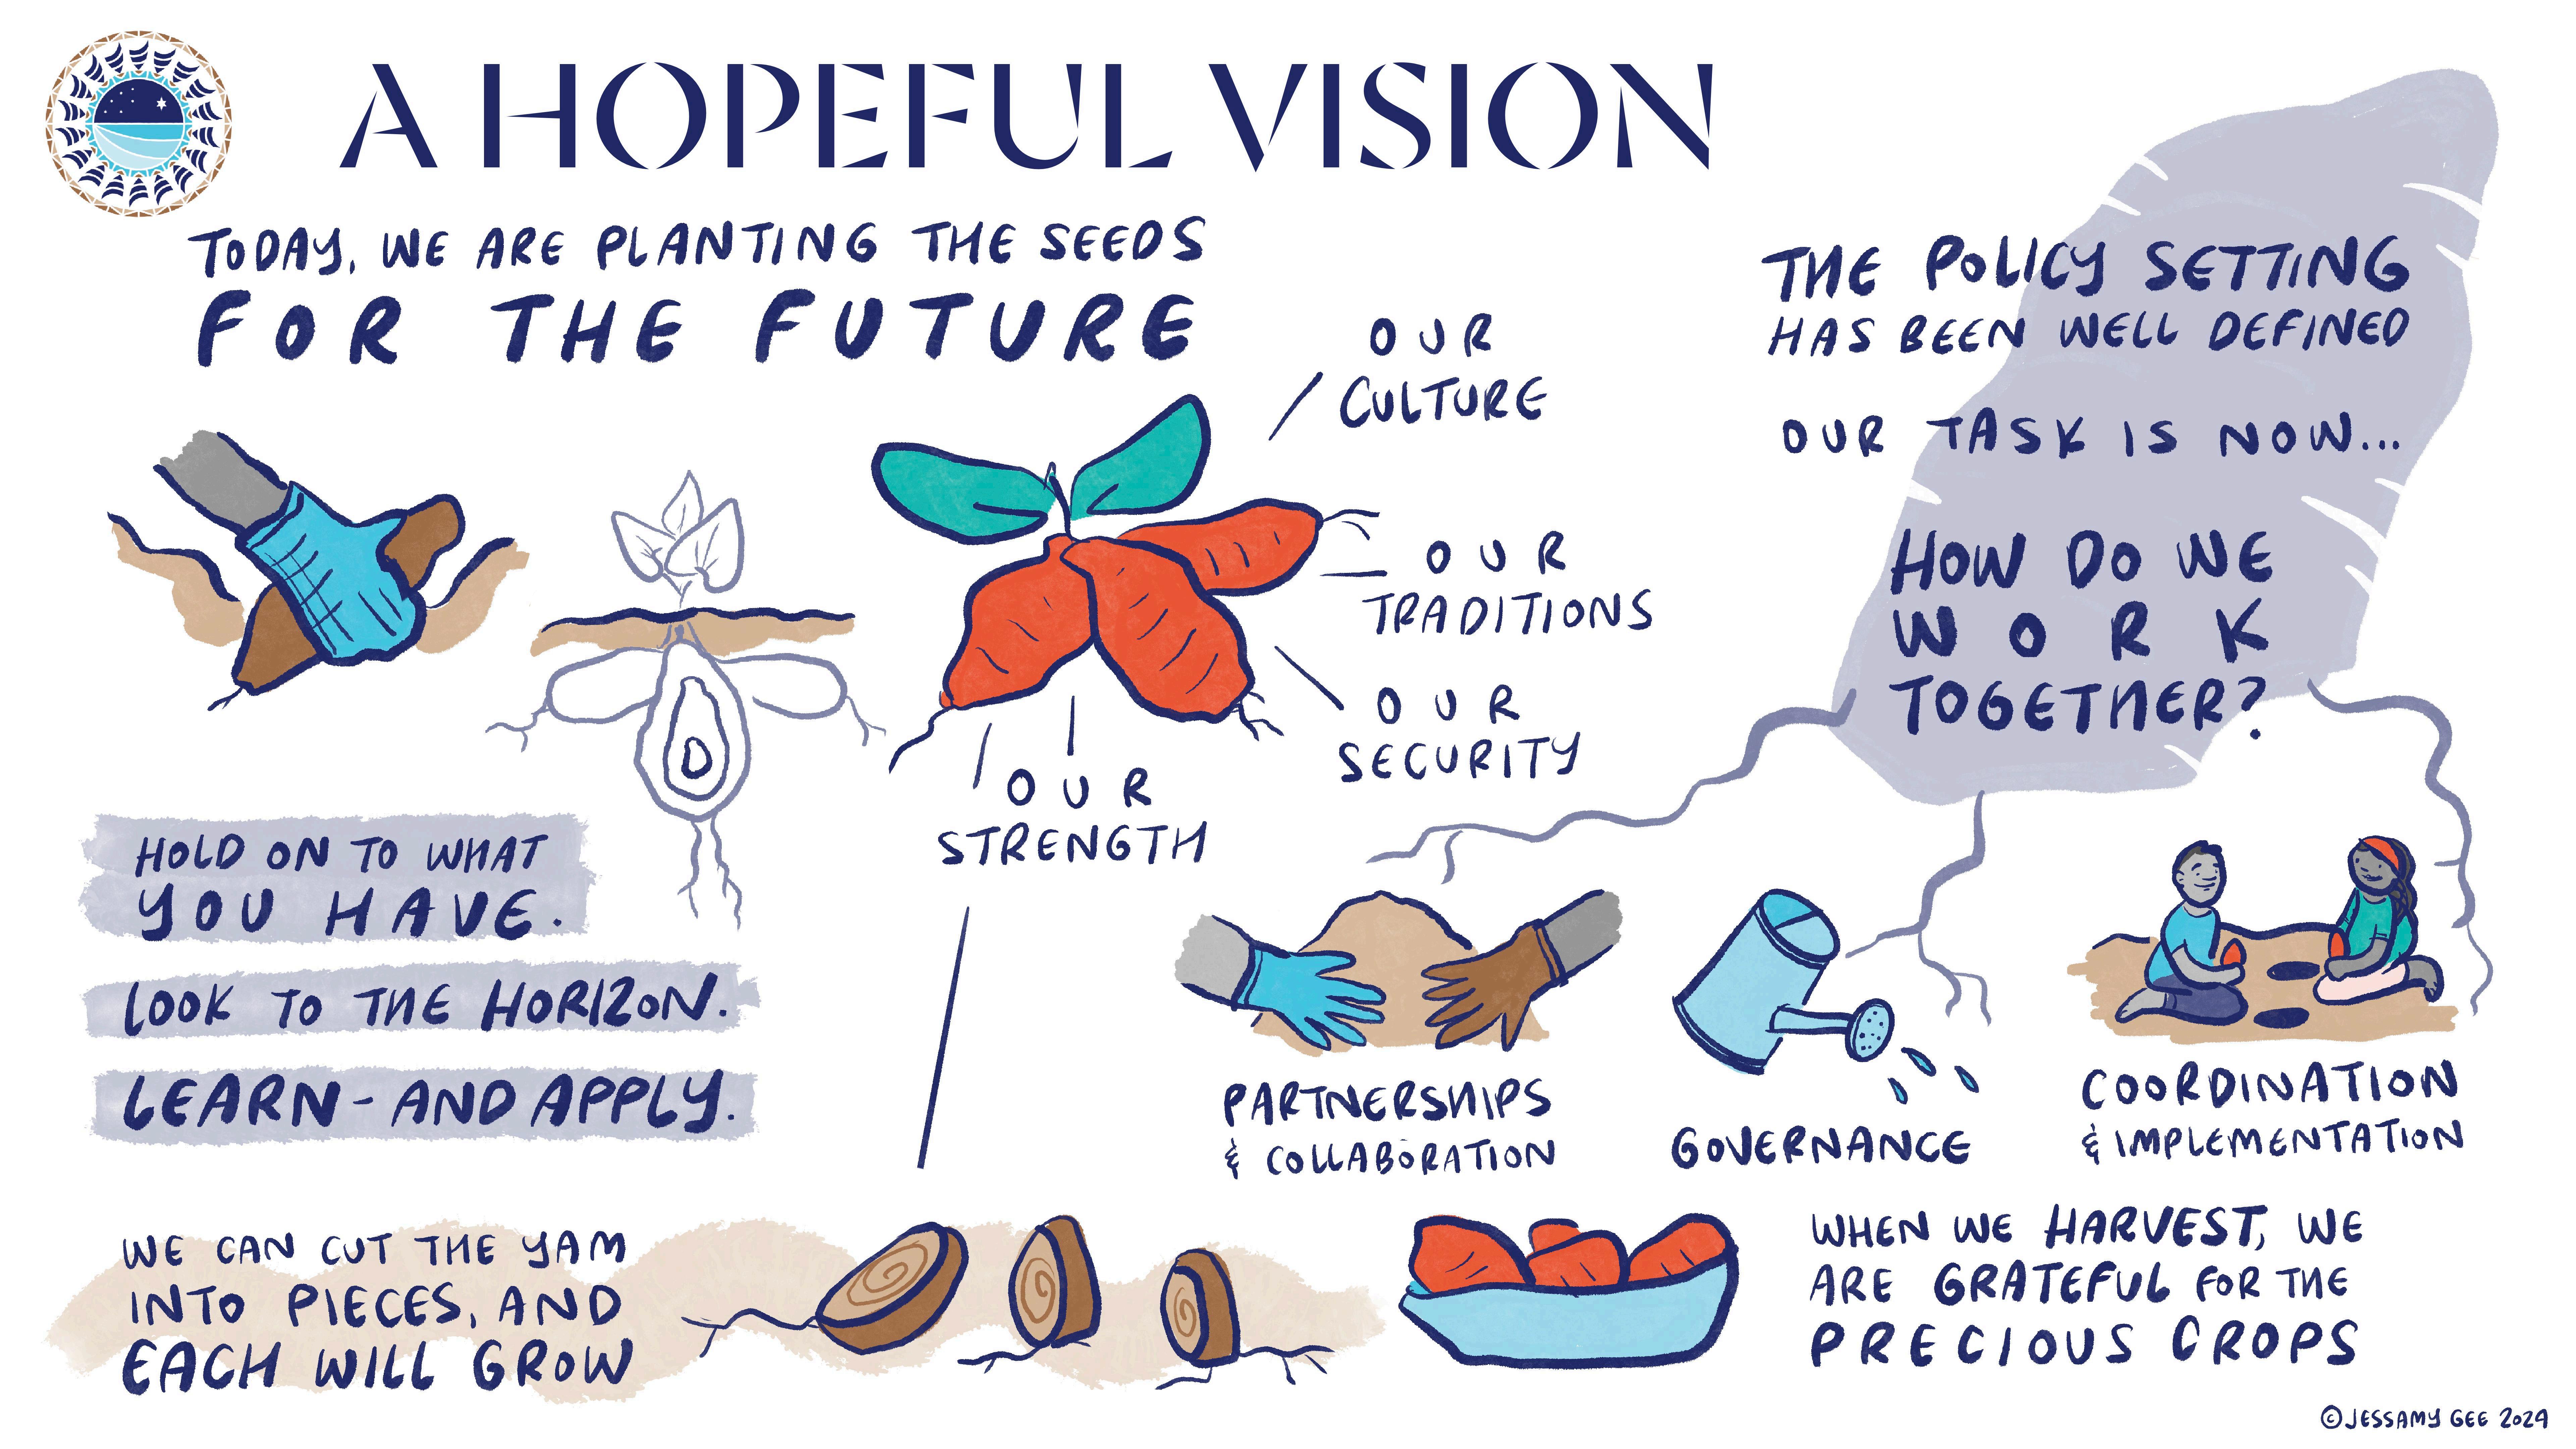 A HOPEFUL VISION
TODAY, WE ARE PLANTING THE SEEDS
FOR THE FUTURE
OUR
CULTURE
OUR
TRADITIONS
OUR
SECURITY
OUR
STRENGTH
THE POLICY SETTING
HAS BEEN WELL DEFINED
OUR TASK IS NOW...
HOW DO WE
WORK
TOGETHER?
HOLD ON TO WHAT
YOU HAVE.
LOOK TO THE HORIZON.
LEARN - AND APPLY.
PARTNERSHIPS
& COLLABORATION
GOVERNANCE
COORDINATION
& IMPLEMENTATION
WE CAN CUT THE YAM
INTO PIECES, AND
EACH WILL GROW
WHEN WE HARVEST, WE
ARE GRATEFUL FOR THE
PRECIOUS CROPS
© JESSAMY GEE 2024